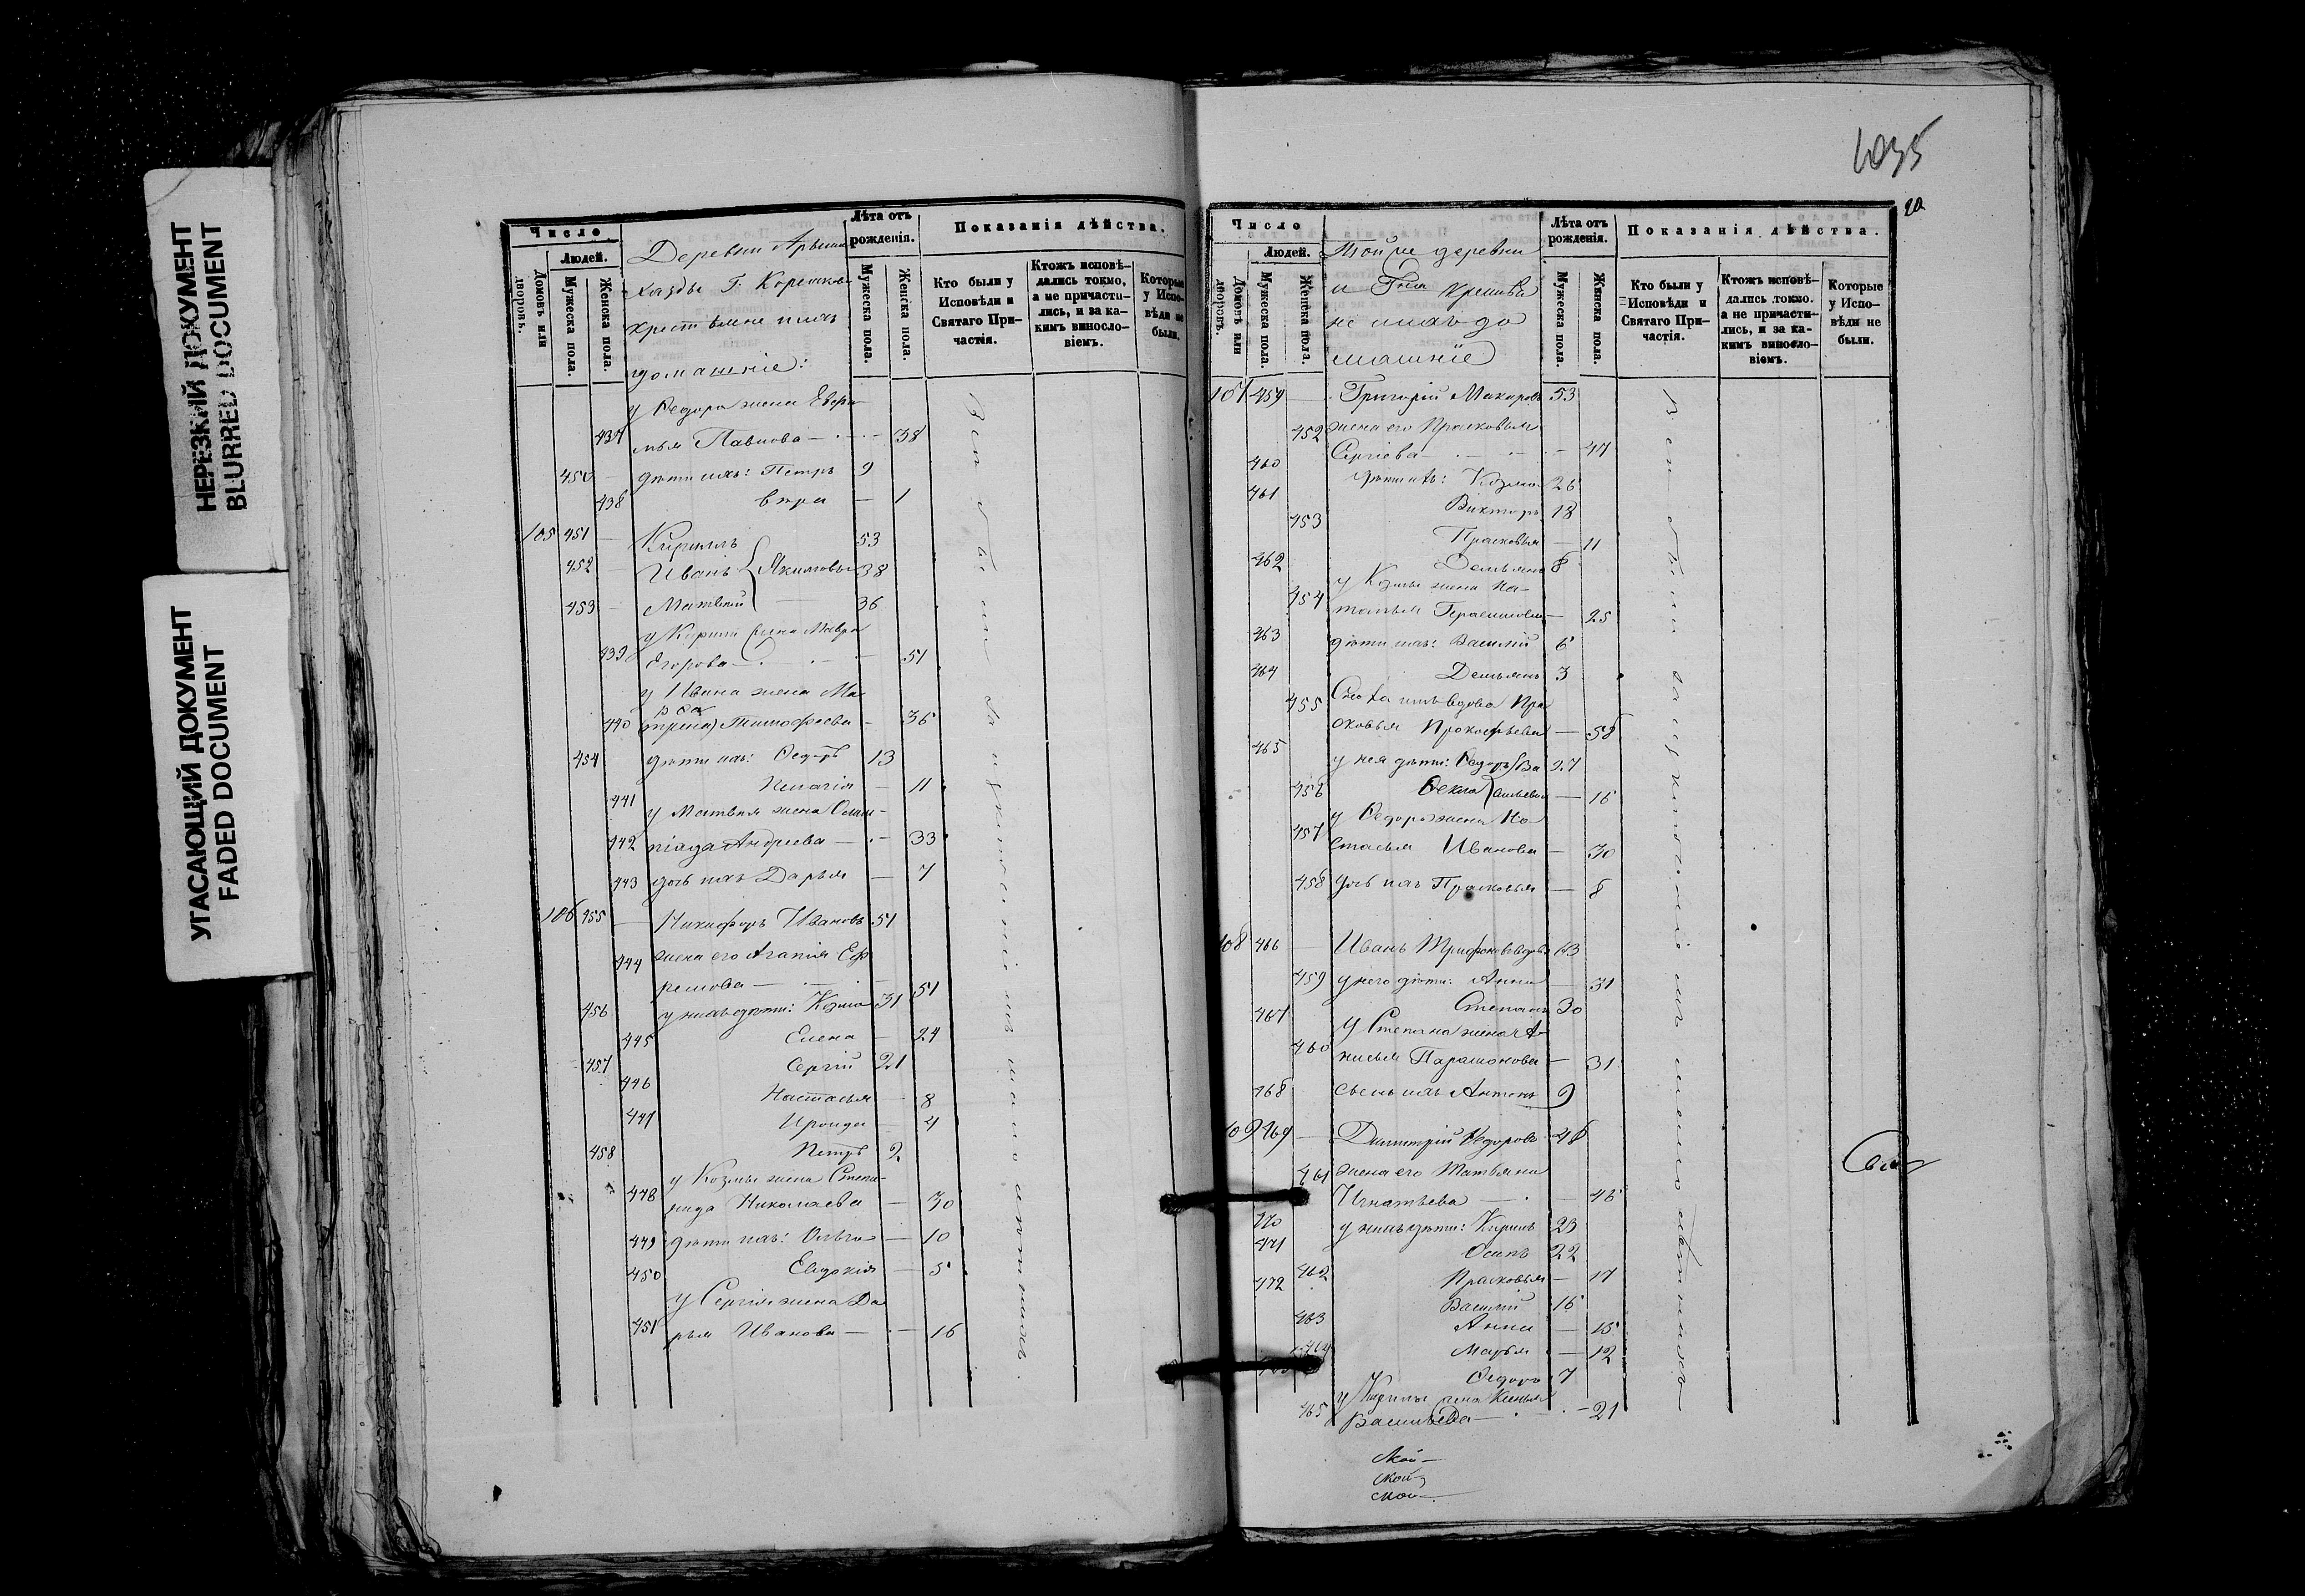 НЕРЕЗКИЙ ДОКУМЕНТ
BLURRED DOCUMENT
УГАСАЮЩИЙ ДОКУМЕНТ
FADED DOCUMENT
Число
Людей.
Домовъ или дворовъ.
Мужеска пола.
Женска пола.
Деревни
крестьяне ихъ
домашніе:
Лѣта отъ рожденія.
Мужеска пола.
Женска пола.
Показанія дѣйства.
Кто были у Исповѣди и Святаго Причастія.
Ктожъ исповѣдались токмо, а не причастились, и за какимъ винословіемъ.
Которые у Исповѣди не были.
у Ѳедора жена
437 Павлова — 38
450 дѣти ихъ: Петръ 9
438 Вѣра — 1
105 451 — Кирилъ 53
452 — Иванъ Якимовы 38
453 — Матвѣй 36
у Кирила жена Мавра
439 Егорова — 51
у Ивана жена Ма
440 Тимофеева — 36
454 дѣти ихъ: Ѳедоръ 13
441 Пелагія — 11
у Матвѣя жена Олим-
442 піада Андреева — 33
443 дочь ихъ Дарья — 7
106 455 — Никифоръ Ивановъ 51
444 жена его Агапія Еф
ремова — 51
456 у нихъ дѣти: Козма 31
445 Елена — 24
457 Сергій 21
446 Настасья — 8
447 Ироида — 4
458 Петръ 2
у Козмы жена Степа-
448 нида Николаева — 30
449 дѣти ихъ: Ольга — 10
450 Евдокія — 5
у Сергія жена Да
451 рья Иванова — 16
20
Число
Людей.
Домовъ или дворовъ.
Мужеска пола.
Женска пола.
Тойже деревни
и Гна
не ихъ до
машніе
Лѣта отъ рожденія.
Мужеска пола.
Женска пола.
Показанія дѣйства.
Кто были у Исповѣди и Святаго Причастія.
Ктожъ исповѣдались токмо, а не причастились, и за какимъ винословіемъ.
Которые у Исповѣди не были.
107 459 — Григорій Макаровъ 53
452 жена его Прасковья
Сергіева — 47
460 дѣти ихъ: Козма 26
461 Викторъ 18
453 Прасковья — 11
462 Демьянъ 8
у Козмы жена На-
454 талья Герасимова — 25
463 дѣти ихъ: Василій 6
464 Демьянъ 3
455 Сноха ихъ вдова Пра
сковья Прокофьева — 58
465 у нея дѣти: Ѳедоръ Ва 27
456 Ѳекла сильевы — 16
у Ѳедора жена На
457 стасья Иванова — 30
458 дочь ихъ Прасковья — 8
108 466 — Иванъ Трифоновъ вдовъ 63
459 у него дѣти: Анна — 31
467 Степанъ 30
у Степана жена А-
460 нисья Парамонова — 31
468 сынъ ихъ Антонъ 9
109 469 — Димитрій Ѳедоровъ 48
461 жена его Татьяна
Игнатьева — 46
470 у нихъ дѣти: Кирилъ 23
471 Осипъ 22
462 Прасковья — 17
472 Василій 16
463 Анна — 15
464 Марья — 12
Ѳедоръ 7
у Кирилы жена Ксенья
465 Васильева — 21